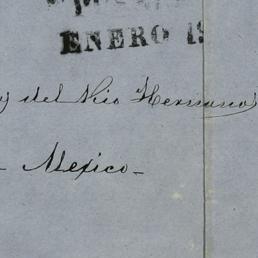 ENERO 1
y del Rio Hermanos
- Mexico -